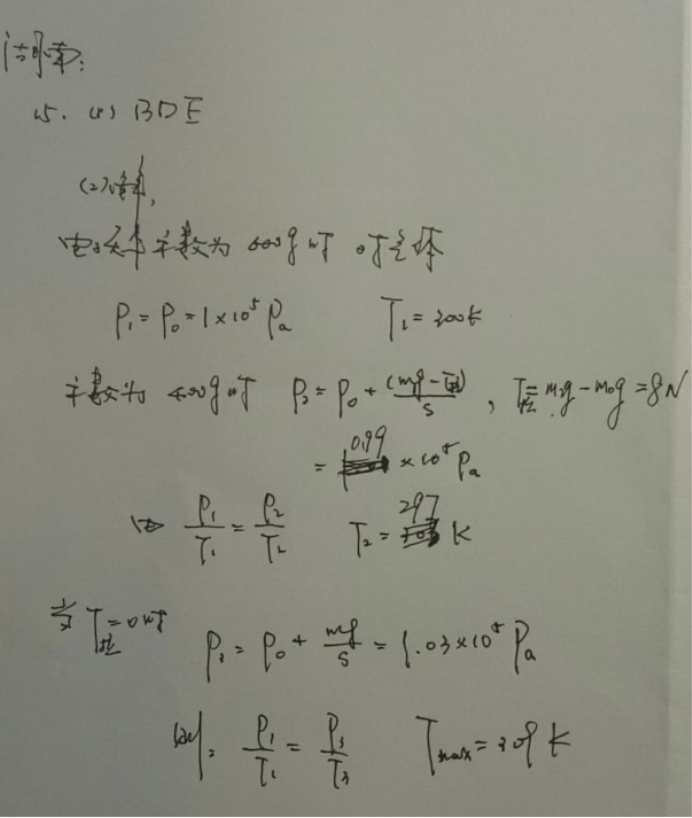 15. (1) BDE
(2)
电子天平示数为 600g 时 对气体
P₁ = P₀ = 1×10⁵ Pa T₁ = 300K
示数为 400g 时 P₂ = P₀ + (mg - T拉)/S , T拉 = m₂g - m₀g = 8N
= 0.99 ×10⁵ Pa
由 P₁/T₁ = P₂/T₂ T₂ = 297 K
当 T拉 = 0 时 P₃ = P₀ + mg/S = 1.03×10⁵ Pa
则: P₁/T₁ = P₃/T₃ Tmax = 309 K